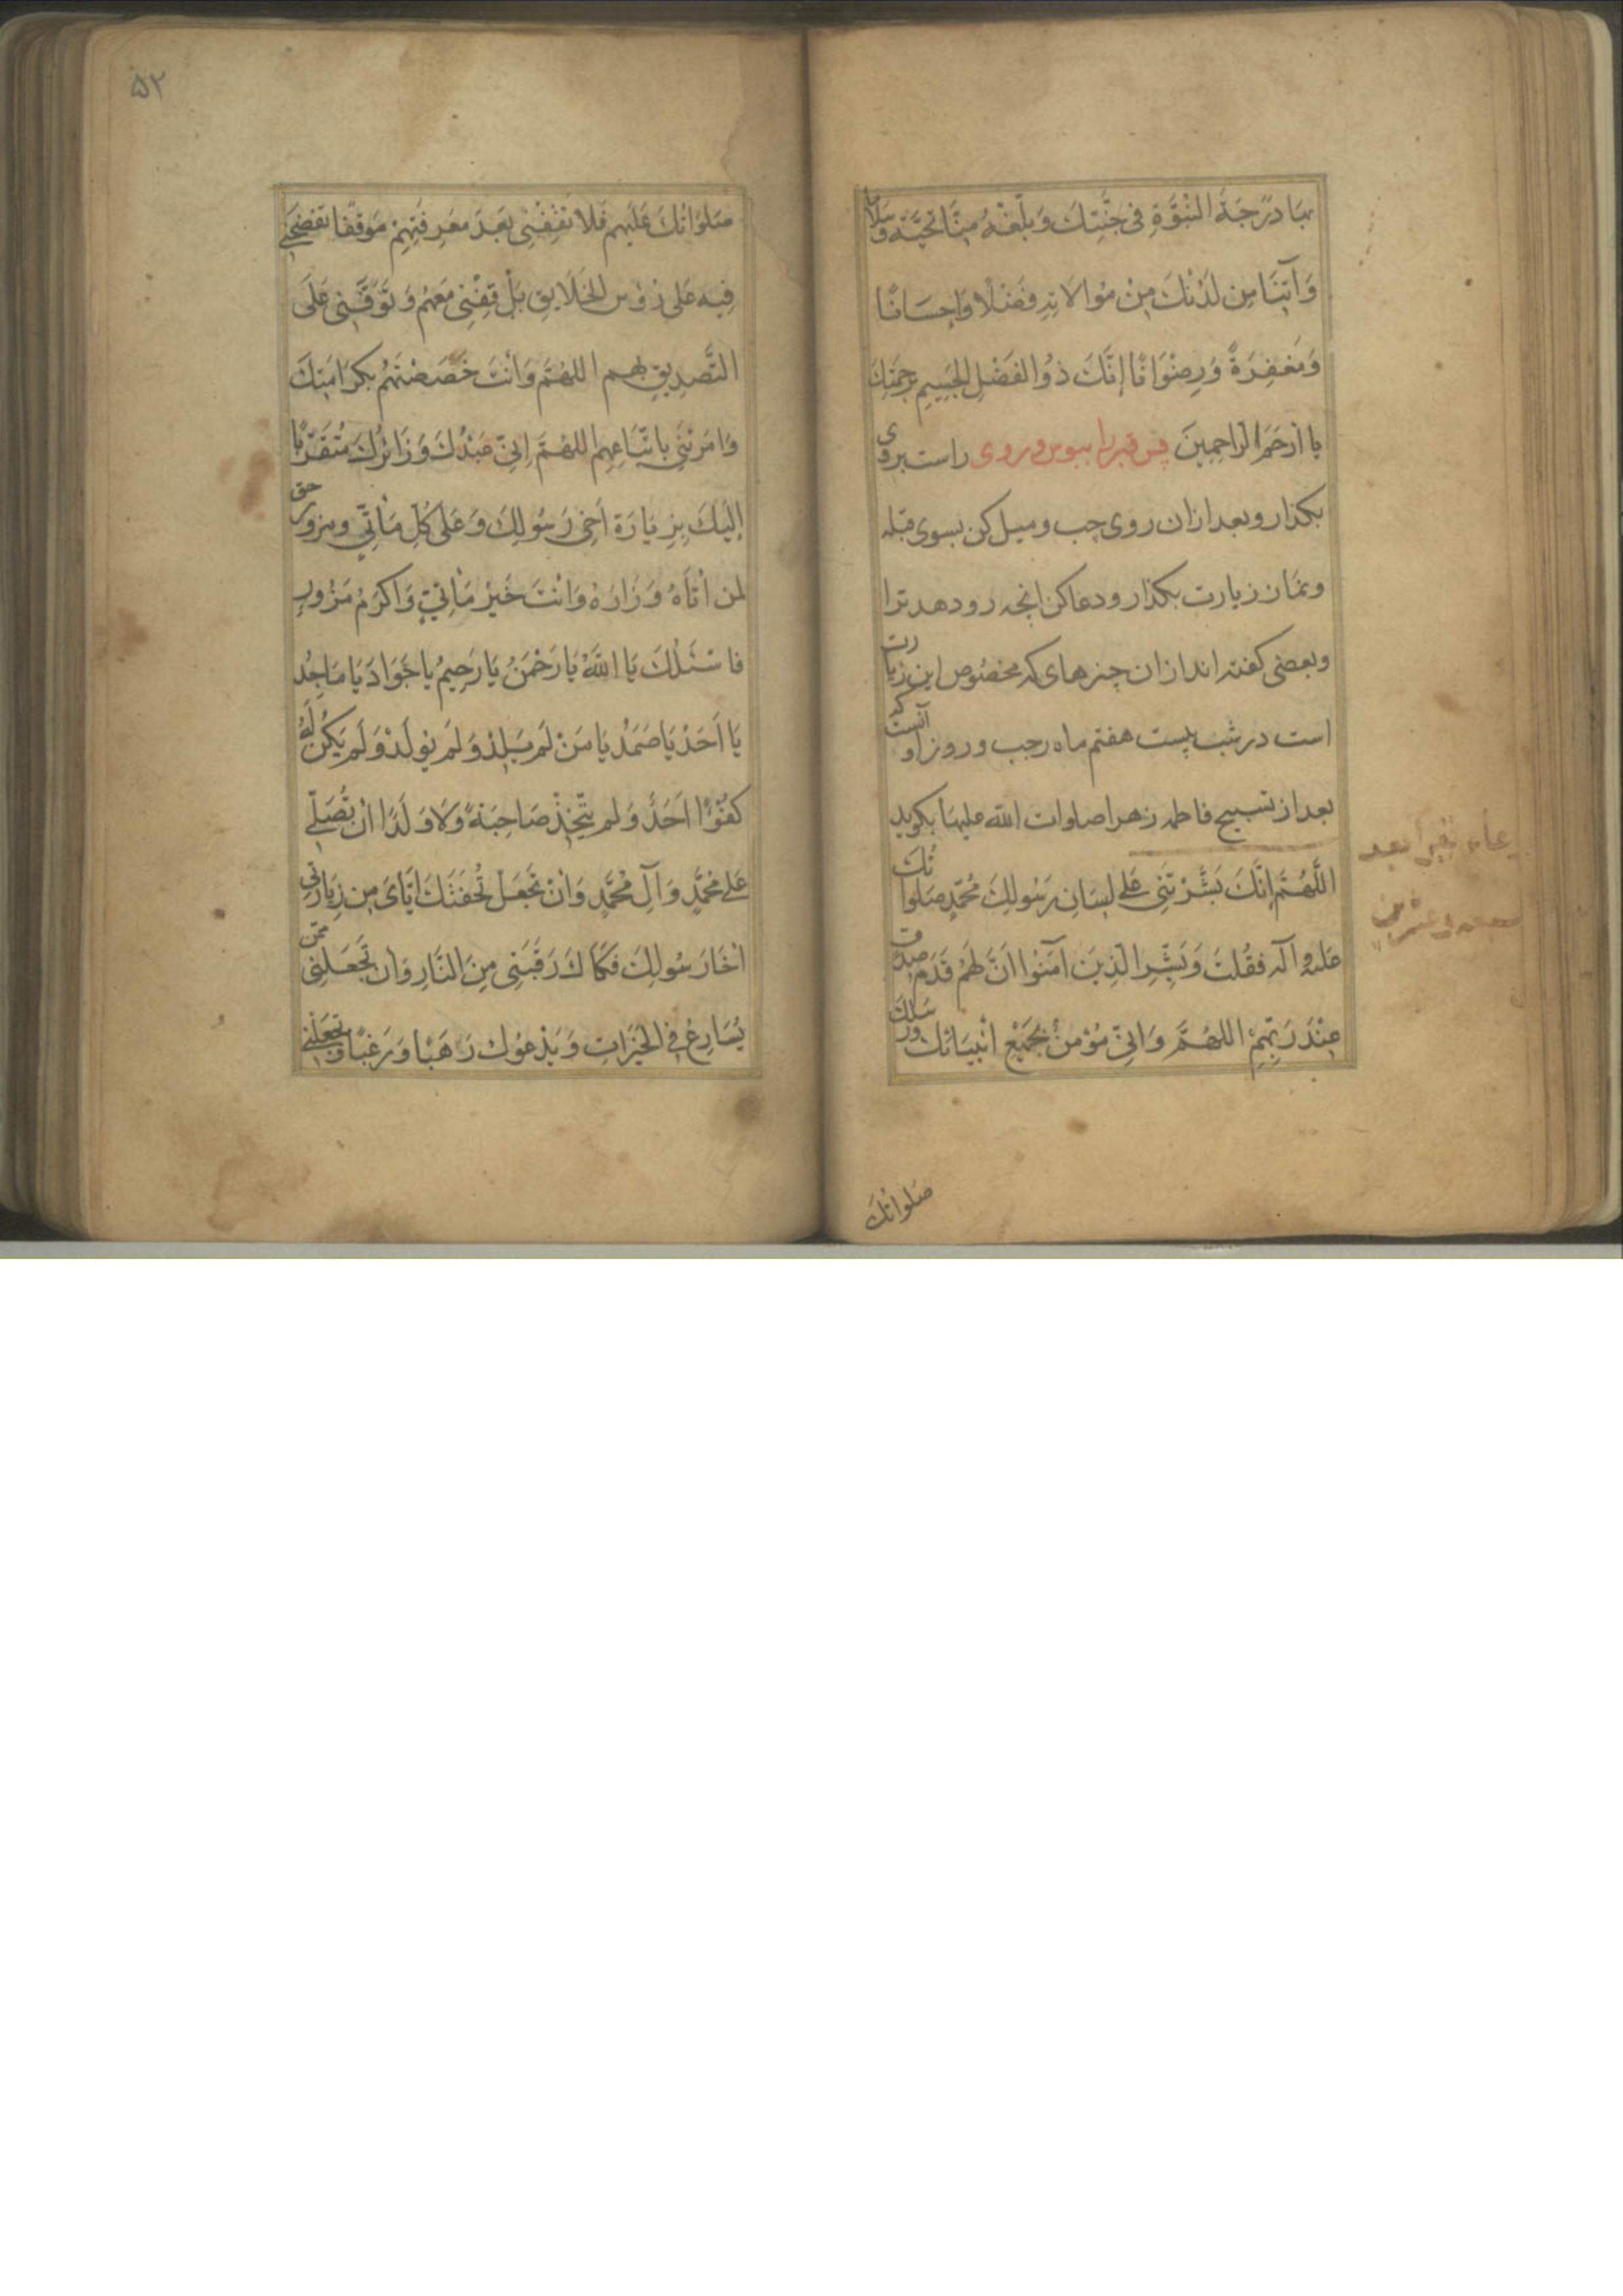 بِهَا دَرَجَةَ النُّبُوَّةِ فِى جَنَّتِكَ وَبَلِّغْهُ مِنَّا تَحِيَّةً وَسَلَامًا
وَآتِنَا مِن لَدُنْكَ مِنْ مُوَالَاتِهِ فَضْلًا وَاِحْسَانًا
وَمَغْفِرَةً وَرِضْوَانًا إِنَّكَ ذُو الفَضْلِ الجَسِيمِ بِرَحْمَتِكَ
يا أرْحَمَ الرَّاحِمِينَ پس قبر را ببوس و روى راست برو
بگذار و بعد ازان روى چپ و ميل كن بسوى قبله
ونماز زيارت بگذار ودعا كن انچه رو دهد ترا
وبعضى گفته اند ازان چيزهاى كه مخصوص اين زيارت
است در شب بيست هفتم ماه رجب وروز او آنست كه
بعد از تسبيح فاطمه زهرا صلوات الله عليها بگويد
اللَّهُمَّ إِنَّكَ بَشَّرْتَنِى عَلى لِسَانِ رَسُولِكَ مُحَمَّدٍ صَلَوَاتُكَ
عَلَيْهِ وآلِهِ فَقُلتَ وَبَشِّرِ الَّذِينَ آمَنُوا اَنَّ لَهُمْ قَدَمَ صِدْقٍ
عِنْدَ رَبِّهِمْ اللهُمَّ وَاِنِّى مُؤْمِنٌ بِجَمِيْعِ اَنْبِيَائِكَ وَرُسُلِكَ
صَلَوَاتُكَ
۵۲
صَلَوَاتُكَ عَلَيْهِم فَلَا تَقِفْنِى بَعْدَ مَعْرِفَتِهِمْ مَوْقِفًا تَفْضَحُنِى
فِيهِ عَلى رُؤُسِ الخَلَايِقِ بَلْ قِفْنِى مَعَهُمْ وَتَوَفَّنِى عَلَى
التَّصْدِيقِ بِهِم اللهُمَّ وَاَنْتَ خَصَصْتَهُمْ بِكَرَامَتِكَ
وَاَمَرْتَنِى بِاتِّبَاعِهِم اللهُمَّ اِنِّى عَبْدُكَ وَزَائِرُكَ مُتَقَرِّبًا
إِلَيْكَ بِزِيَارَةِ اَخِى رَسُولِكَ وَعَلى كُلِّ مَأْتِيٍّ ومزور حق
لِمن اَتَاهُ وَزَارَهُ وَاَنْتَ خَيْرُ مَأْتِيٍّ وَاَكْرَمُ مَزُورٍ
فَاَسْئَلُكَ يَا اللهُ يَا رَحْمٰنُ يَا رَحِيمُ يا جَوَادُ يَا مَاجِدُ
يَا اَحَدُ يَا صَمَدُ يَا مَنْ لَم يَلِدْ وَلَم يُولَدْ وَلَم يَكُنْ لَهُ
كُفُوًا اَحَدٌ وَلَم يَتَّخِذْ صَاحِبَةً وَلَا وَلَدًا اَنْ تُصَلِّى
عَلى مُحَمَّدٍ وَآلِ مُحَمَّدٍ وَاَنْ تَجْعَلَ تُحْفَتَكَ اِيَّاىَ مِن زِيَارَتِى
اَخَا رَسُولِكَ فَكَاكَ رَقَبَتِى مِنَ النَّارِ وَاَنْ تَجْعَلَنِى مِمَّن
يُسَارِعُ فِى الخَيْرَاتِ وَيَدْعُوكَ رَهَبًا وَرَغَبًا وَتَجْعَلَنِى